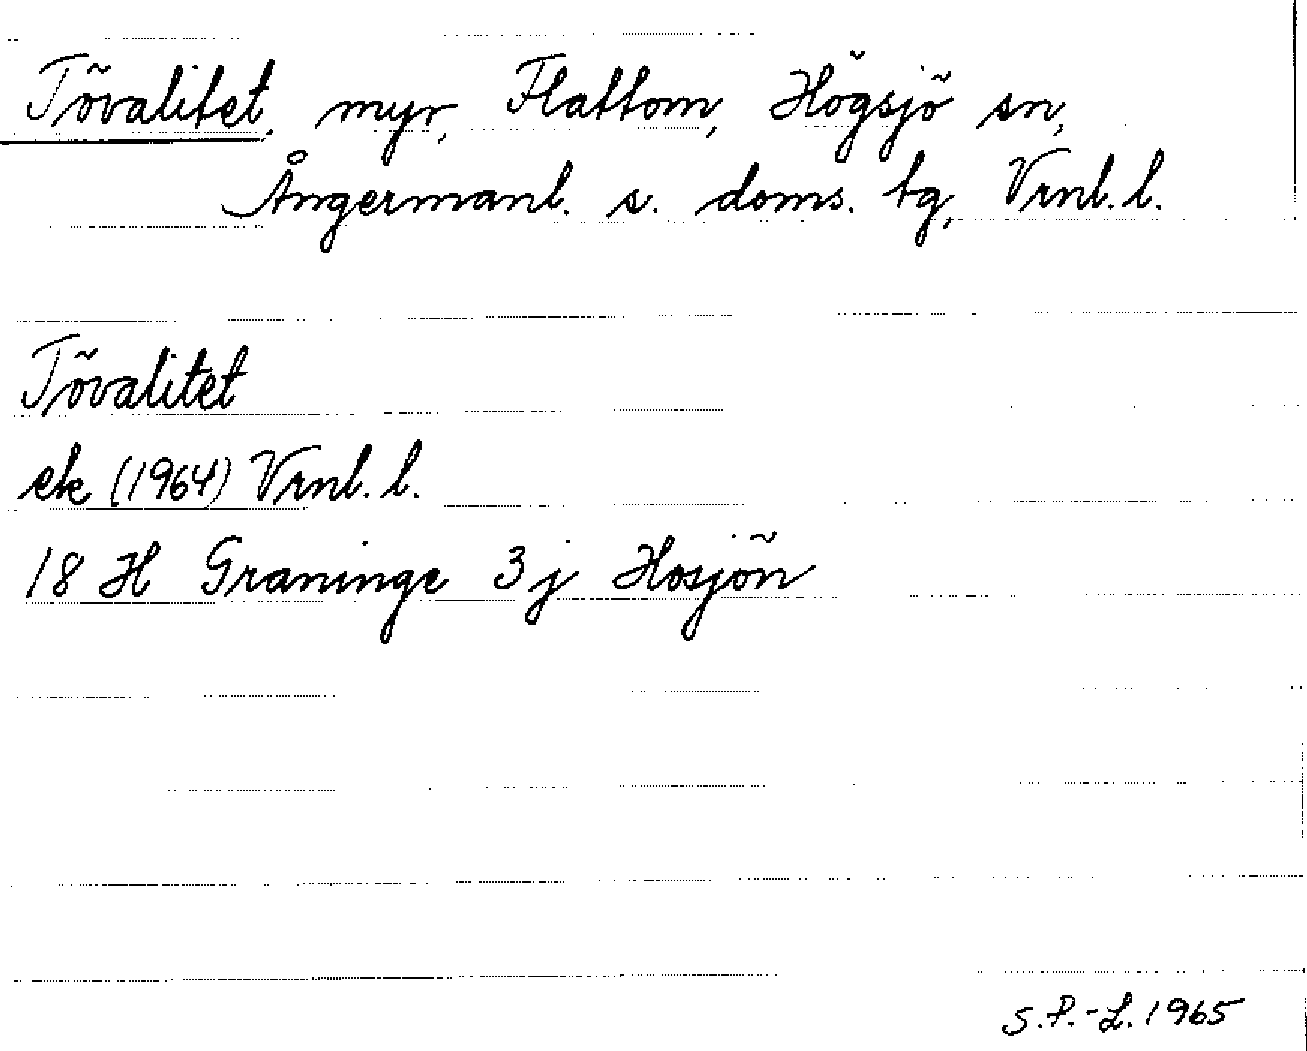 Tövalitet, myr, Flattom, Högsjö sn,
Ångermanl. s. doms. tg, Vrnl. l.
Tövalitet
ek (1964) Vrnl. l.
18 H Graninge 3j Hosjön
S.P.-L. 1965